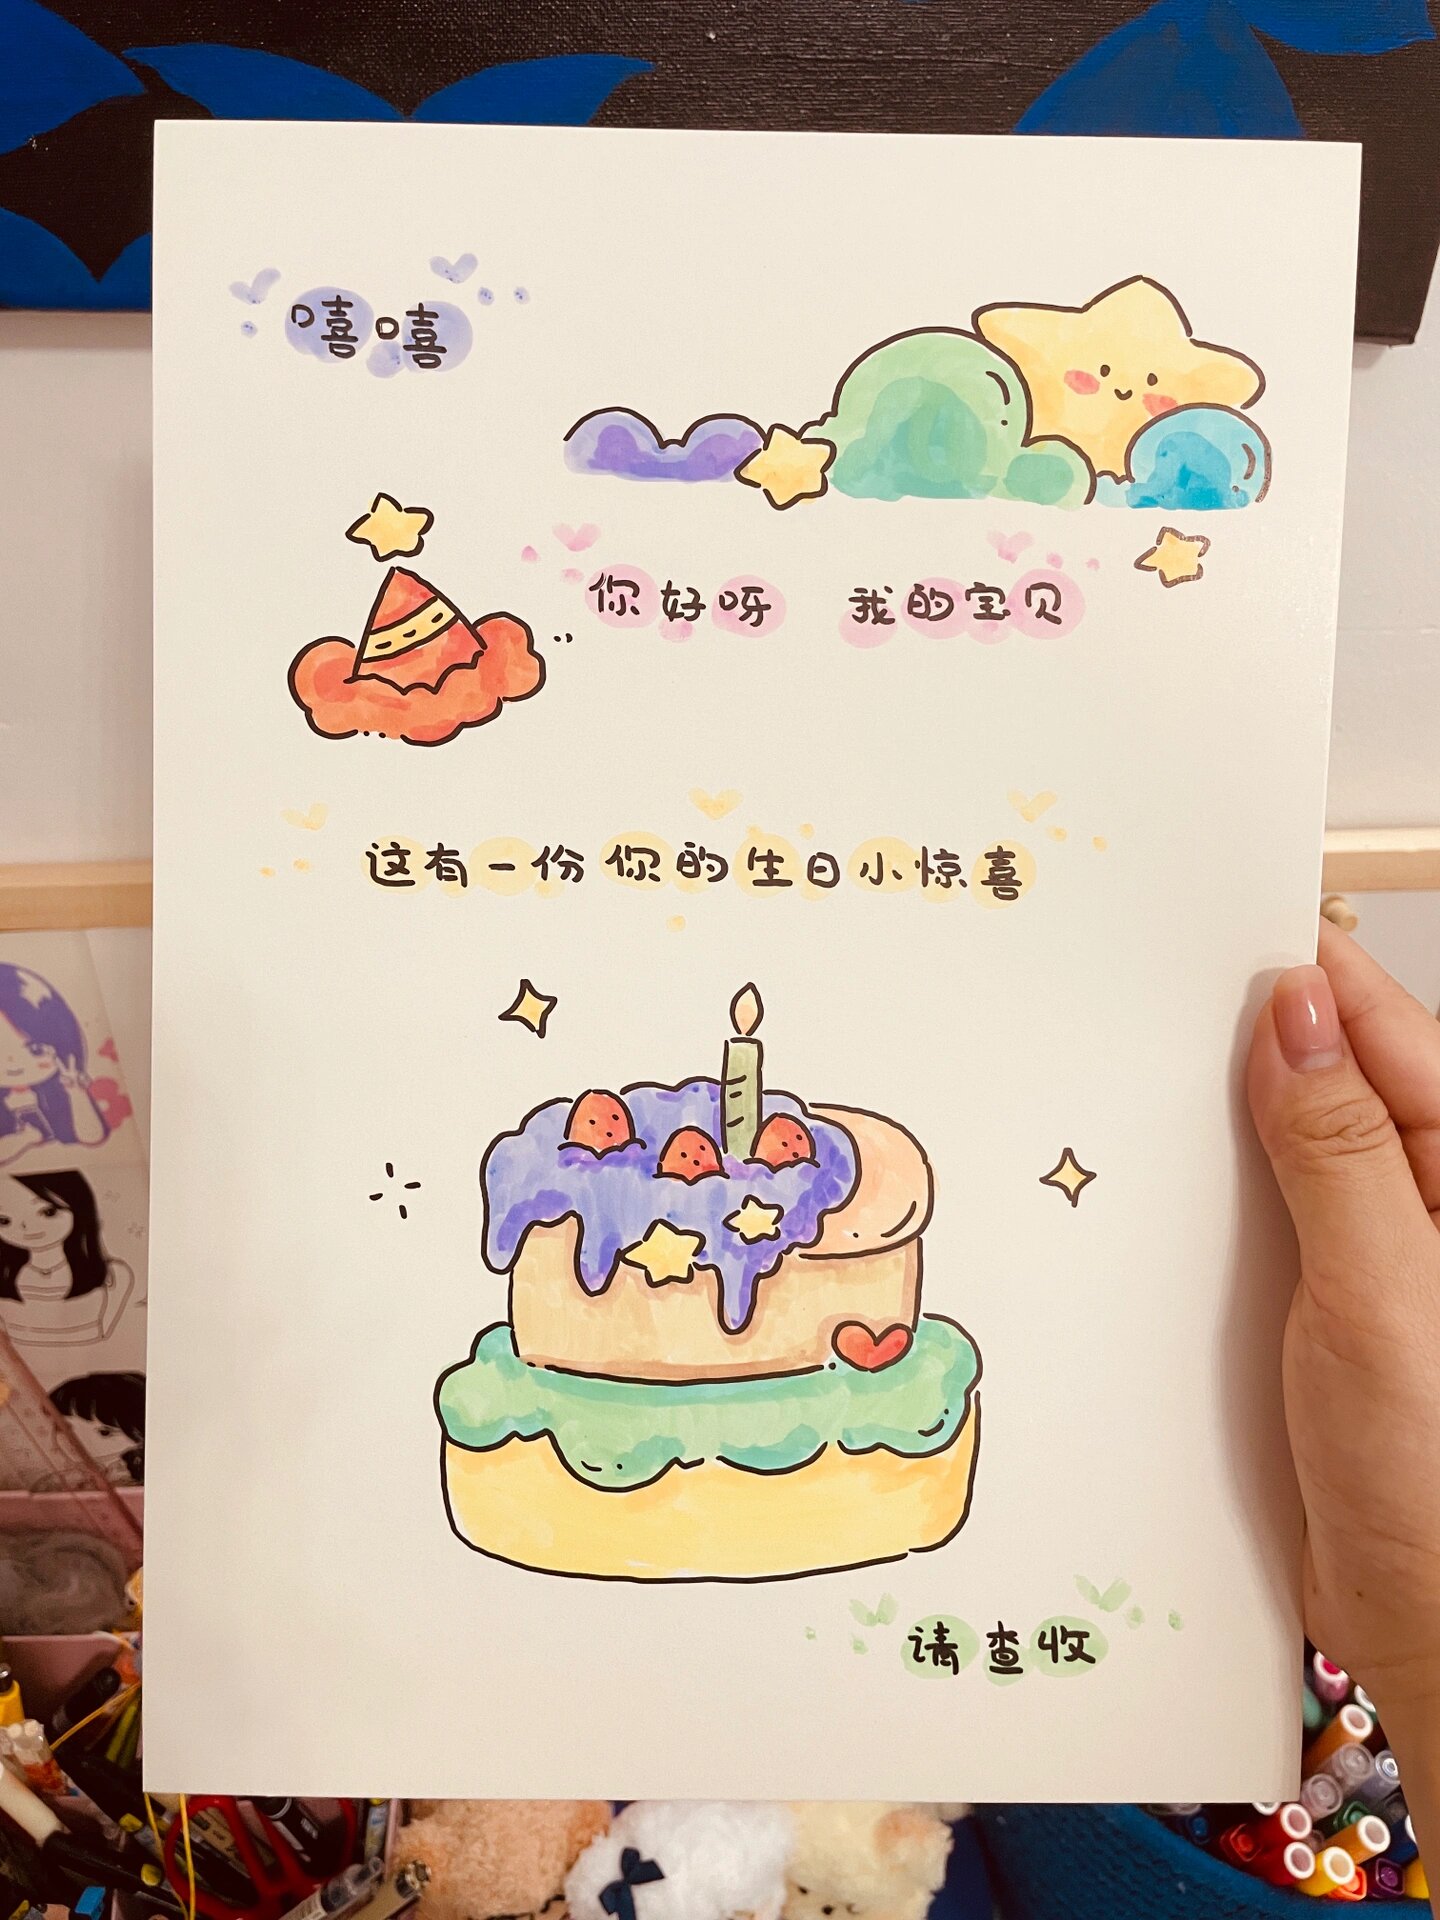 嘻嘻
你好呀 我的宝贝
这有一份你的生日小惊喜
请查收